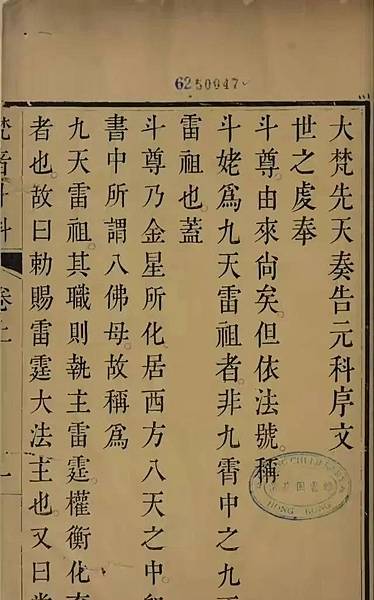 6250047
大梵先天奏告元科序文
世之虔奉
斗尊由來尙矣但依法號稱
斗姥爲九天雷祖者非九霄中之九天
雷祖也蓋
斗尊乃金星所化居西方八天之中
書中所謂八佛母故稱爲
九天雷祖其職則執主雷霆權衡化
者也故曰勅賜雷霆大法主也又曰
梵音斗科 卷上
HONG KONG